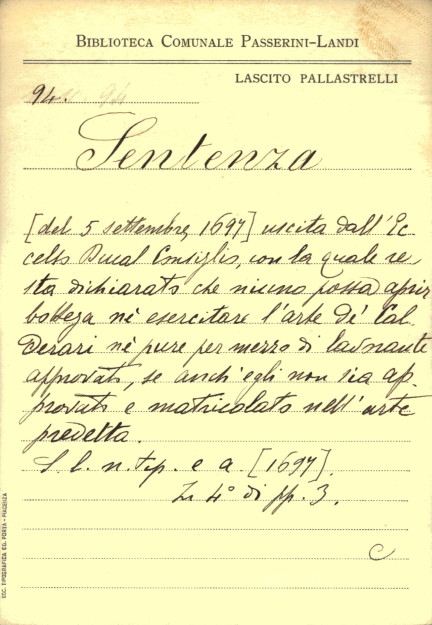 BIBLIOTECA COMUNALE PASSERINI-LANDI
LASCITO PALLASTRELLI
94.
Sentenza
[del 5 settembre, 1697] uscita dall'Ec
cells Ducal Consiglio, con la quale re
sta dichiarato che niuno possa aprir
bottega nè esercitare l'arte dé Cal
derari nè pure per mezzo di lavorante
approvato, se anch'egli non sia ap
provato e matricolato nell'arte
predetta.
S. l. n. tip. e a. [1697].
In 4° di pp. 3.
C
SOC. TIPOGRAFICA ED. PORTA - PIACENZA